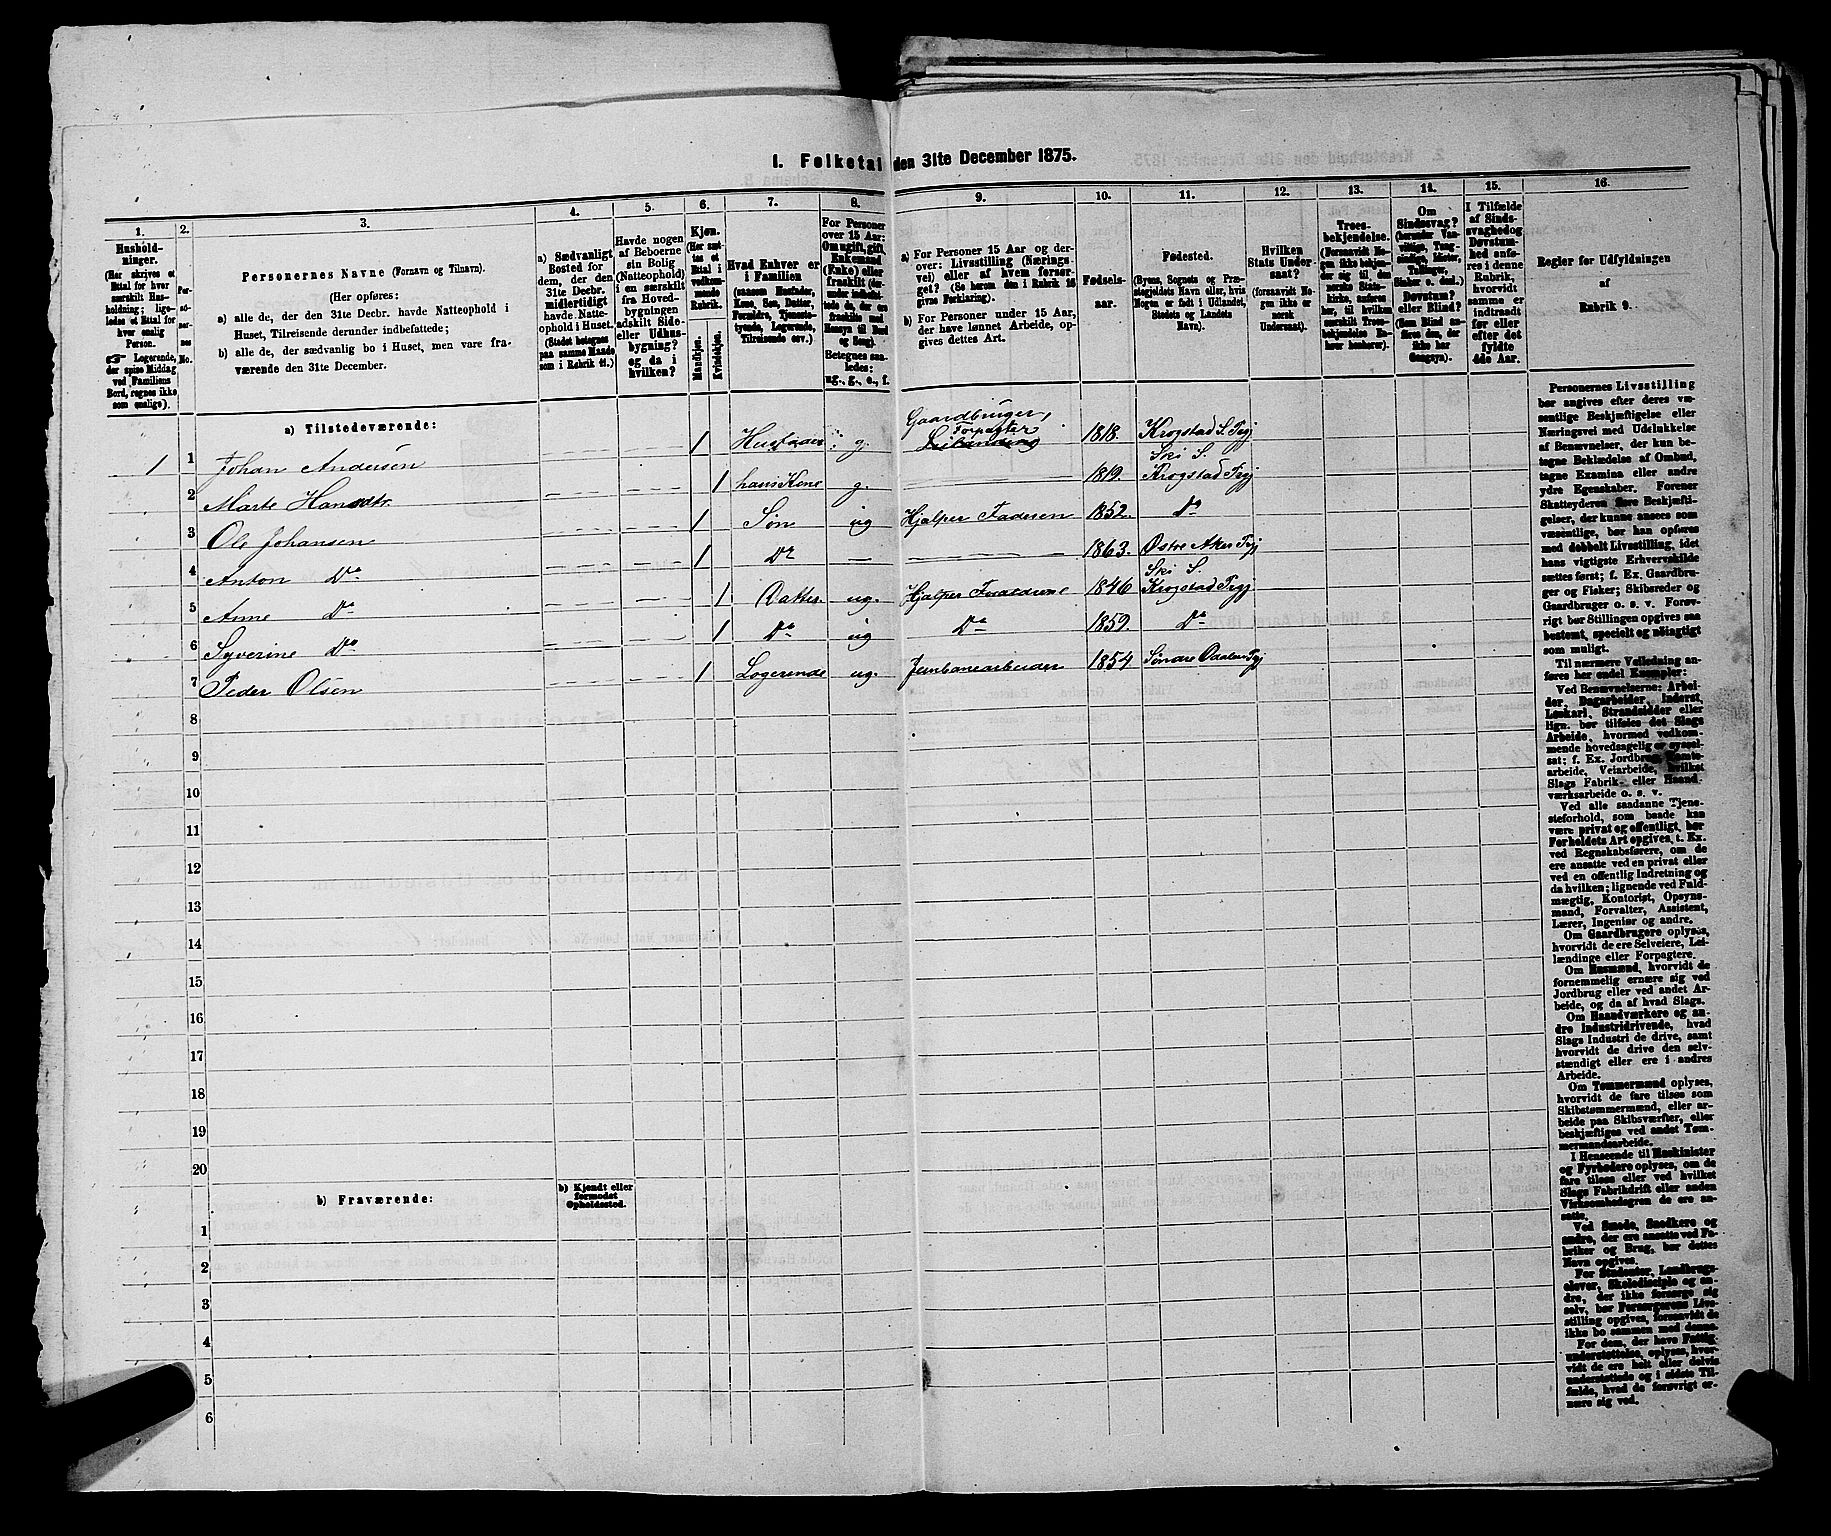 I. Folketal den 31te December 1875.
1. 2. 3. 4. 5. 6. 7. 8. 9. 10. 11. 12. 13. 14. 15. 16.
Hushold-
ninger.
(Her skrives et
Ettal for hver
særskilt Hus-
holdning; lige-
ledes et Ettal for
hver enslig
Person.
☞ Logerende,
der spise Middag
ved Familiens
Bord, regnes ikke
som enslige).
Per-
so-
ner-
nes
No.
Personernes Navne (Fornavn og Tilnavn).
(Her opføres:
a) alle de, der den 31te Decbr. havde Natteophold i
Huset, Tilreisende derunder indbefattede;
b) alle de, der sædvanlig bo i Huset, men vare fra-
værende den 31te December.
a) Sædvanligt
Bosted for
dem, der den
31te Decbr.
midlertidigt
havde Natte-
ophold i Huset.
(Stedet betegnes
paa samme Maade
som i Rubrik 11.)
Havde nogen
af Beboerne
sin Bolig
(Natteophold)
i en særskilt
fra Hoved-
bygningen
adskilt Side-
eller Udhus-
bygning?
og da i
hvilken?
Kjøn.
(Her sæt-
tes et
Ettal i
vedkom-
mende
Rubrik.
Mandkjøn.
Kvindekjøn.
Hvad Enhver er
i Familien
(saasom Husfader,
Kone, Søn, Datter,
Forældre, Tjeneste-
tyende, Logerende,
Tilreisende osv.)
For Personer
over 15 Aar:
Om ugift, gift,
Enkemand
(Enke) eller
fraskilt
Hensyn til Bord
og Seng).
Betegnes saa-
ledes:
ug., g., e., f.
a) For Personer 15 Aar og der-
over: Livsstilling (Nærings-
vei) eller af hvem forsør-
get? (Se herom den i Rubrik 16
givne Forklaring).
b) For Personer under 15 Aar,
der have lønnet Arbeide, op-
gives dettes Art.
Fødsels-
aar.
Fødested.
(Byens, Sognets og Præ-
stegjeldets Navn eller, hvis
Nogen er født i Udlandet,
Stedets og Landets
Navn).
Hvilken
Stats Under-
saat?
(forsaavidt No-
gen ikke er
norsk
Undersaat).
Troes-
bekjendelse.
(Forsaavidt No-
gen ikke bekjen-
der sig til den
norske Stats-
kirke, anføres
her, til hvilken
særskilt Troes-
bekjendelse En-
hver henhører).
Om
Sindssvag?
(herunder Van-
vittige, Tung-
sindige, Idioter,
Tullinger,
Sinker o. desl.)
Døvstum?
eller Blind?
(Som Blind an-
føres den, der
ikke har
Gangsyn).
I Tilfælde
af Sinds-
svaghed og
Døvstum-
hed anfø-
res i denne
Rubrik,
hvorvidt
samme er
indtraadt
før eller
efter det
fyldte
4de Aar.
Regler for Udfyldningen
af
Rubrik 9.
a) Tilstedeværende:
Gaardbruger,
Forpagter
1 1 Johan Andersen 1 Husfader g. Leilænding 1818. Krogstad S. Prgj
Ski S.
2 Marte Hansdtr. 1 hans Kone g. 1819. Krogstad Prgj
3 Ole Johansen 1 Søn ug Hjælper Faderen 1852. Do
4 Anton Do 1 Do — 1863. Østre Aker Prgj
Ski S.
5 Anne Do 1 Datter ug. Hjælper Forældrene 1846 Krogstad Prgj
6 Syverine Do 1 Do ug Do 1859. Do
7 Peder Olsen 1 Logerende ug. Jernbanearbeider 1854 Søndre Odalen Prgj
8
9
10
11
12
13
14
15
16
17
18
19
20
b) Fraværende:
b) Kjendt eller
formodet
Opholdssted.
1
2
3
4
5
6
Personernes Livsstilling
bør angives efter deres væ-
sentlige Beskjæftigelse eller
Næringsvei med Udelukkelse
af Benævnelser, der kun be-
tegne Beklædelse af Ombud,
tagne Examina eller andre
ydre Egenskaber. Forener
Skatteyderen flere Beskjæfti-
gelser, der kunne ansees som
væsentlige, bør han opføres
med dobbelt Livsstilling, idet
hans vigtigste Erhvervskilde
sættes først; f. Ex. Gaardbru-
ger og Fisker; Skibsreder og
Gaardbruger o. s. v. Forøv-
rigt bør Stillingen opgives saa
bestemt, specielt og nøiagtigt
som muligt.
Til nærmere Veiledning an-
føres her endel Exempler:
Ved Benævnelserne: Arbei-
der, Dagarbeider, Inderst,
Løskarl, Strandsidder eller
lign. bør tilføies det Slags
Arbeide, hvormed vedkom-
mende hovedsagelig er syssel-
sat; f. Ex. Jordbrug, Tomte-
arbeide, Veiarbeide, hvilket
Slags Fabrik- eller Haand-
værksarbeide o. s. v.
Ved alle saadanne Tjene-
steforhold, som baade kan
være privat og offentligt, bør
Forholdets Art opgives, t. Ex.
ved Regnskabsførere, om de
ere ansatte ved en privat eller
ved en offentlig Indretning og
da hvilken; lignende ved Fuld-
mægtig, Kontorist, Opsyns-
mand, Forvalter, Assistent,
Lærer, Ingeniør og andre.
Om Gaardbrugere oplyses,
hvorvidt de ere Selveiere, Lei-
lændinge eller Forpagtere.
Om Husmænd, hvorvidt de
fornemmelig ernære sig ved
Jordbrug eller ved andet Ar-
beide, og da af hvad Slags.
Om Haandværkere og an-
dre Industridrivende, hvad
Slags Industri de drive, samt
hvorvidt de drive den selv-
stændigt eller ere i andres
Arbeide.
Om Tømmermænd oplyses,
hvorvidt de fare tilsøs som
Skibstømmermænd, eller ar-
beide paa Skibsværfter, eller
beskjæftiges ved andet Tøm-
mermandsarbeide.
I Henseende til Maskinister
og Fyrbødere oplyses, om de
fare tilsøs eller ved hvilket
Slags Fabrikdrift eller anden
Virksomhedsgren de ere an-
satte.
Ved Smede, Snedkere og
andre, der ere ansatte ved Fa-
briker og Brug, bør dettes
Navn opgives.
For Studenter, Landbrugs-
elever, Skoledisciple og an-
dre, der ikke forsørge sig
selv, bør Forsørgerens Livs-
stilling opgives, forsaavidt de
ikke bo sammen med denne.
For dem, der have Fattig-
understøttelse, oplyses, hvor-
vidt de ere helt eller delvis
understøttede og i sidste Til-
fælde, hvad de forøvrigt er-
nære sig ved.